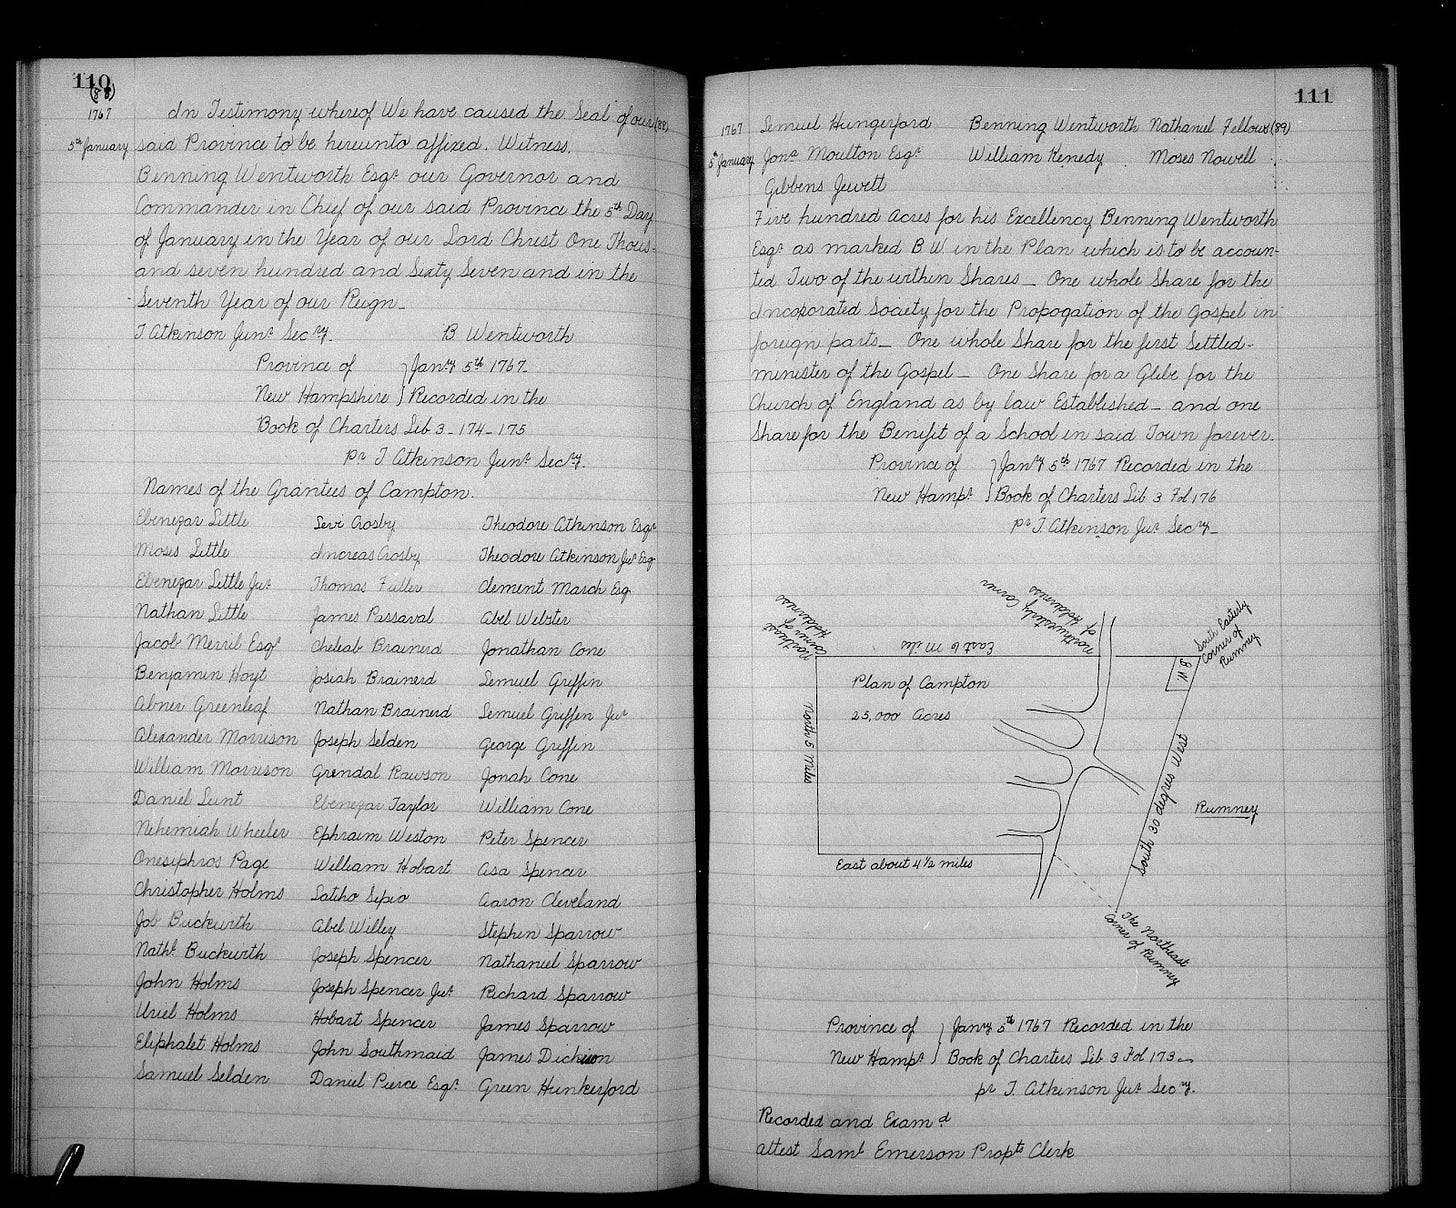 110
(88)
1767
5th January
In Testimony whereof We have caused the Seal of our (88)
said Province to be hereunto affixed. Witness,
Benning Wentworth Esqr our Governor and
Commander in Chief of our said Province the 5th Day
of January in the Year of our Lord Christ One Thous-
and seven hundred and Sixty Seven and in the
Seventh Year of our Reign_
T Atkinson Junr Secry. B Wentworth
Province of } Janry 5th 1767_
New Hampshire } Recorded in the
Book of Charters Lib 3_174_175
pr T Atkinson Junr Secry.
Names of the Grantees of Campton.
Ebenezar Little Levi Crosby Theodore Atkinson Esqr
Moses Little Increas Crosby Theodore Atkinson Jur Esq
Ebenezar Little Jur Thomas Fuller Clement March Esq
Nathan Little James Passaval Abel Webster
Jacob Merril Esqr Cheleab Brainerd Jonathan Cone
Benjamin Hoyt Josiah Brainerd Semuel Griffin
Abner Greenleaf Nathan Brainerd Semuel Griffen Jur
Alexander Morrison Joseph Selden George Griffin
William Morrison Grendal Rawson Jonah Cone
Daniel Lunt Ebenezar Taylor William Cone
Nehemiah Wheeler Ephraim Weston Peter Spencer
Onesiphros Page William Hobart Asa Spencer
Christopher Holms Satiho Sipio Aaron Cleveland
Job Buckwith Abel Willey Stephen Sparrow
Nathl Buckwith Joseph Spencer Nathaniel Sparrow
John Holms Joseph Spencer Jur Richard Sparrow
Uriel Holms Hobart Spencer James Sparrow
Eliphalet Holms John Southmaid James Dickson
Samuel Selden Daniel Pierce Esqr Green Hunkerford
111
1767
5th January
Semuel Hungerford Benning Wentworth Nathaniel Fellows (89)
Jonr Moulton Esqr William Kenedy Moses Nowell
Gibbens Jewett
Five hundred Acres for his Excellency Benning Wentworth
Esqr as marked B W. in the Plan which is to be accoun-
ted Two of the within Shares_ One whole Share for the
Incoporated Society for the Propogation of the Gospel in
foreign parts_ One whole Share for the first Settled-
minister of the Gospel_ One Share for a Glebe for the
Church of England as by law Established_ and one
Share for the Benifit of a School in said Town forever.
Province of } Janry 5th 1767 Recorded in the
New Hampr } Book of Charters Lib 3 Fol 176
pr T Atkinson Jur Secry_
Northeast
Corner of
Holderness
East 6 Miles
Northwesterly Corner
of Holderness
South Easterly
Corner of
Rumney
B W
Plan of Campton
25,000 Acres
North 5 Miles
South 30 degrees West
Rumney
East about 4 1/2 miles
The Northeast
Corner of Rumney
Province of } Janry 5th 1767 Recorded in the
New Hampr } Book of Charters Lib 3 Fol 173_
pr T. Atkinson Jur Secry.
Recorded and Examd
attest Saml Emerson Proprs Clerk